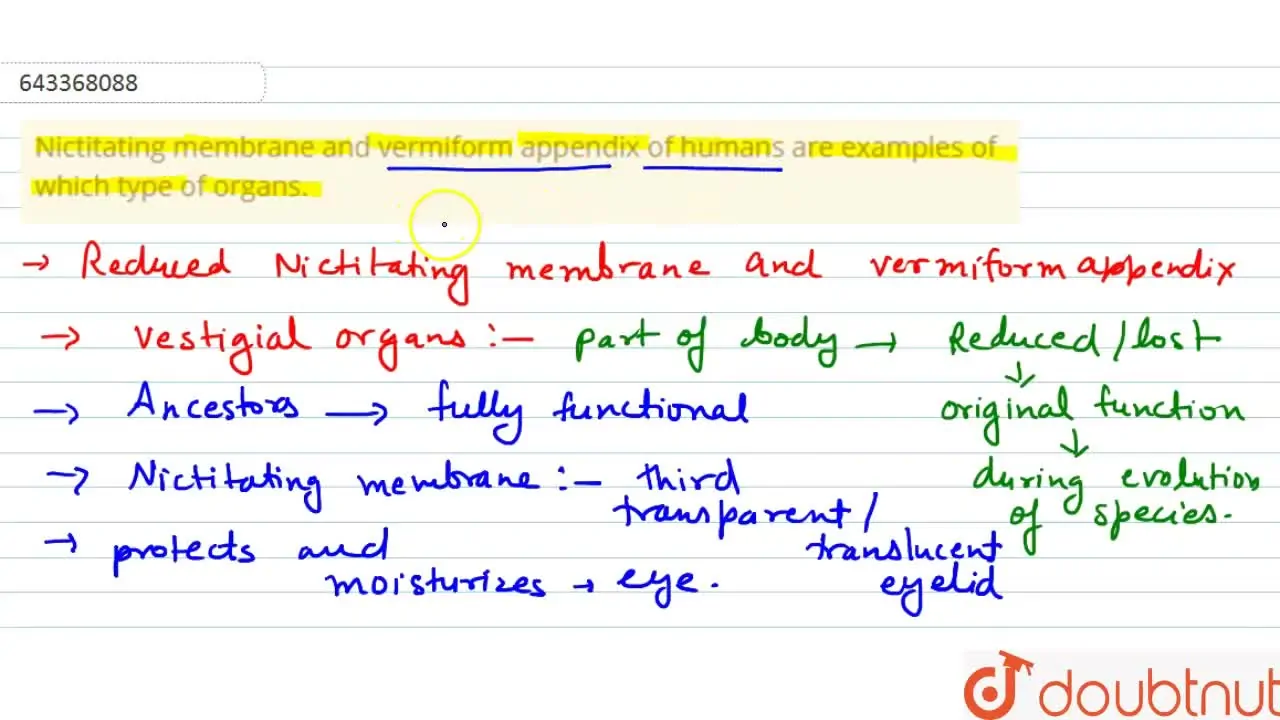 643368088
Nictitating membrane and vermiform appendix of humans are examples of
which type of organs.
→ Reduced Nictitating membrane and vermiform appendix
→ Vestigial organs :- part of body → Reduced / lost
→ Ancestors → fully functional
original function
→ Nictitating membrane :- third
transparent /
translucent
eyelid
during evolution
of species.
→ protects and
moisturizes → eye.
doubtnut